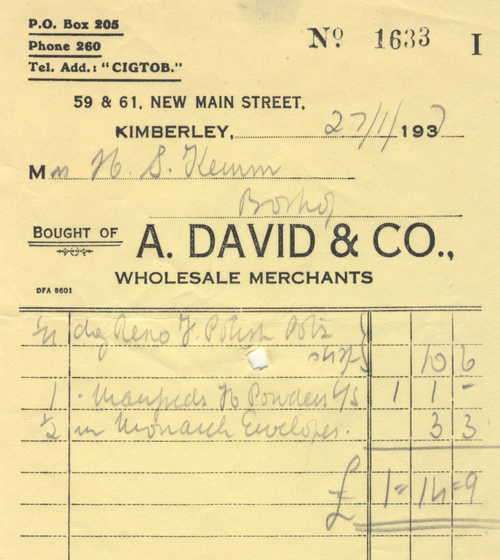 P.O. Box 205
Phone 260
Tel. Add.: "CIGTOB."
Nº 1633 I
59 & 61, NEW MAIN STREET,
KIMBERLEY, 27/1/1937
M H. S. Kemm
Boshof
BOUGHT OF
A. DAVID & CO.,
WHOLESALE MERCHANTS
DFA 8601
doz Reno F. Polish
10 6
1 H Powders 1 1 -
½ m Monarch Envelopes. 3 3
£ 1 = 14 = 9